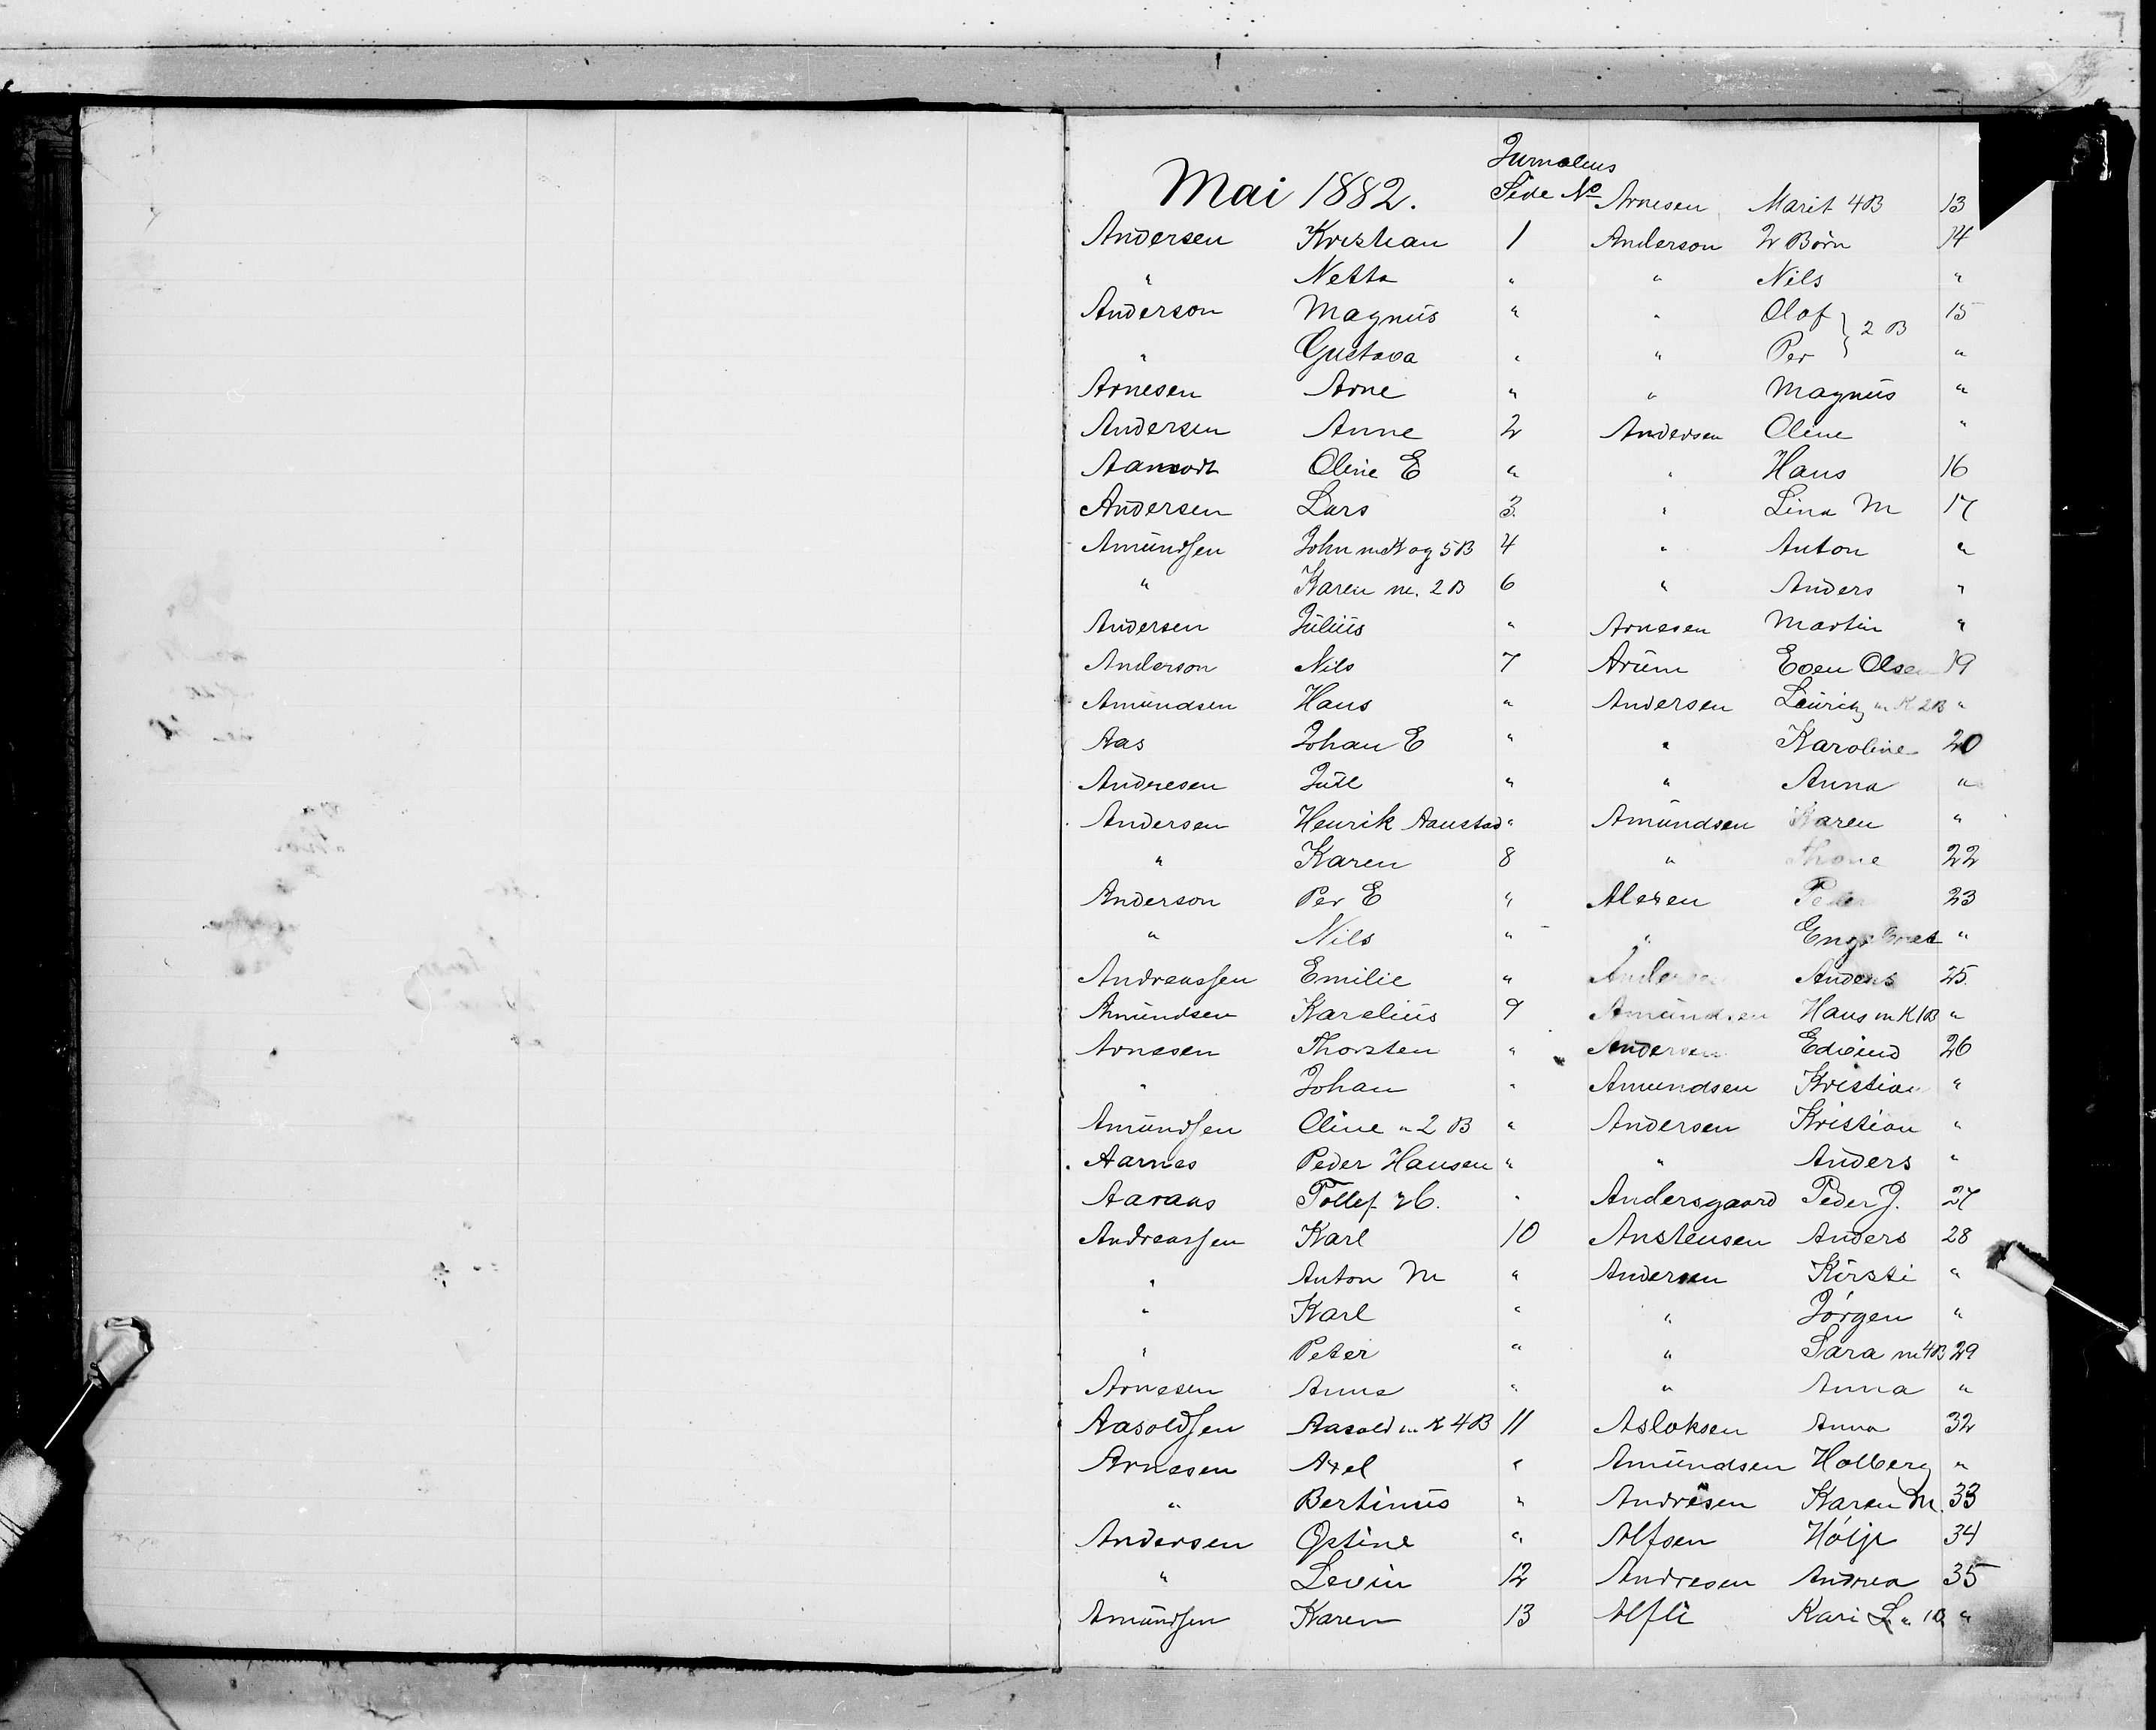 Mai 1882.
Jurnalens
Side No
Andersen Kristian 1
" Netta "
Anderson Magnus "
" Gustava "
Arnesen Arne "
Andersen Anne 2
Aamodt Oline E "
Andersen Lars 3.
Amundsen John m K og 5 B 4
" Karen m. 2 B 6
Andersen Julius "
Anderson Nils 7
Amundsen Hans "
Aas Johan E "
Andresen Juul "
Andersen Henrik Aanstad "
" Karen 8
Anderson Per E "
" Nils "
Andreassen Emilie "
Amundsen Karelius 9
Arnesen Thorsten "
" Johan "
Amundsen Oline " 2 B "
Aarnes Peder Hansen "
Aaraas Tollef "
Andreassen Karl 10
" Anton M "
" Karl "
" Peter "
Arnesen Anne "
Aasoldsen Aasold m K 4 B 11
Arnesen Axel "
" Bertinus "
Andersen Ostine "
" Levin 12
Amundsen Karen 13
Arnesen Marit 4 B 13
Anderson 2 Børn 14
" Nils "
" Olof } 2 B 15
" Per "
" Magnus "
Andersen Oline "
" Hans 16
" Lina M 17
" Anton "
" Anders "
Arnesen Martin "
Arum Even Olsen 19
Andersen Lauritz m K 2 B "
" Karoline 20
" Anna "
Amundsen Karen "
" Thone 22
Alexen Peder 23
" Engebret "
Andersen Anders 25.
Amundsen Hans m K 1 B "
Andersen Edvind 26
Amundsen Kristian "
Andersen Kristian "
" Anders "
Andersgaard Peder J. 27
Anstensen Anders 28
Andersen Kirsti "
" Jørgen "
" Sara m 4 B 29
" Anna "
Asloksen Anna 32
Amundsen Holberg "
Andresen Karen M. 33
Alfsen Hølje 34
Andresen Andrea 35
Alfli Kari L " 1 B "